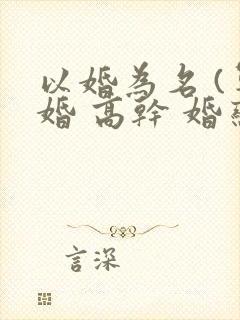 以婚為名(
婚 高幹 婚
言深